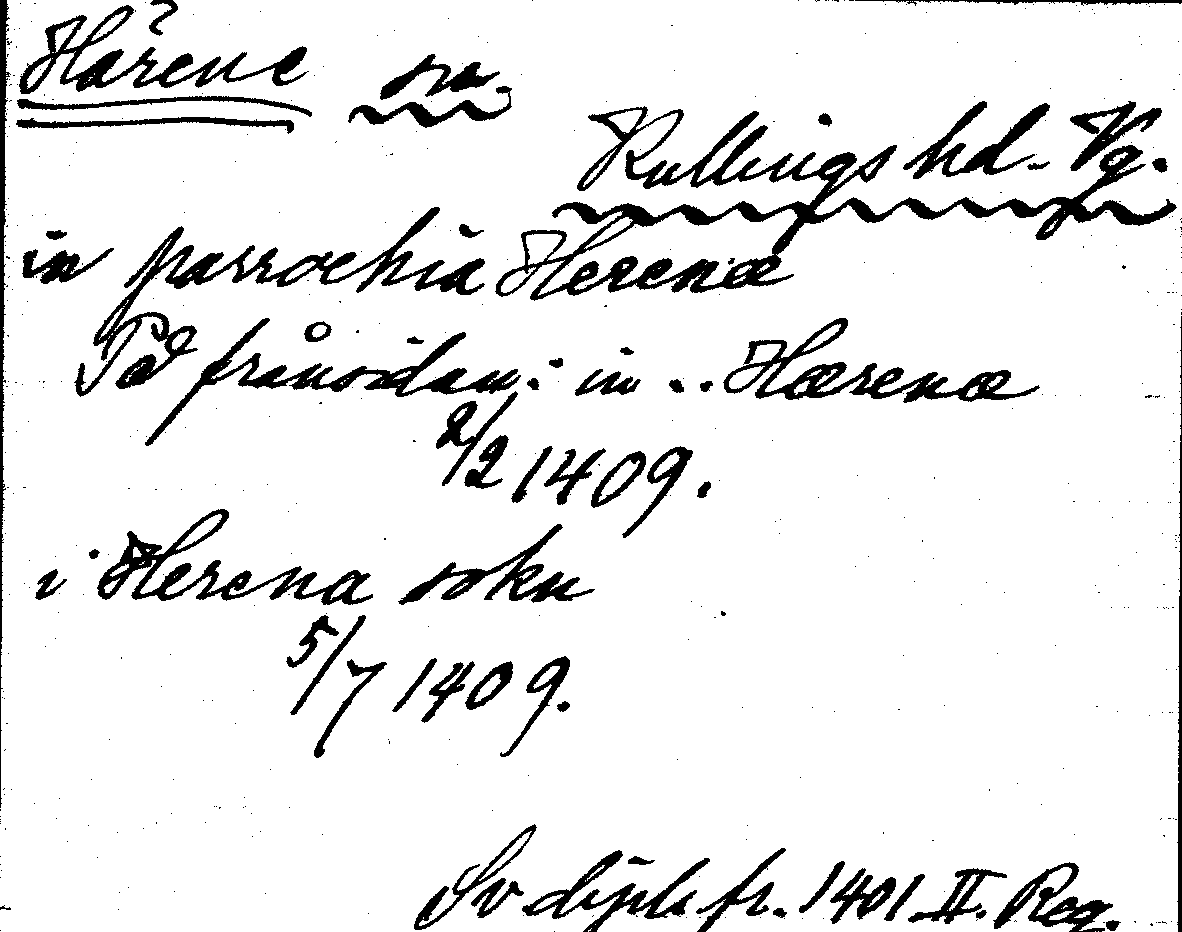 Härene sn.
Kullings hd. Vg.
in parrochia Herenæ
På frånsidan: in .. Hærenæ
2/2 1409.
i Herena sokn
5/7 1409.
Sv dipl. fr. 1401 II. Reg.